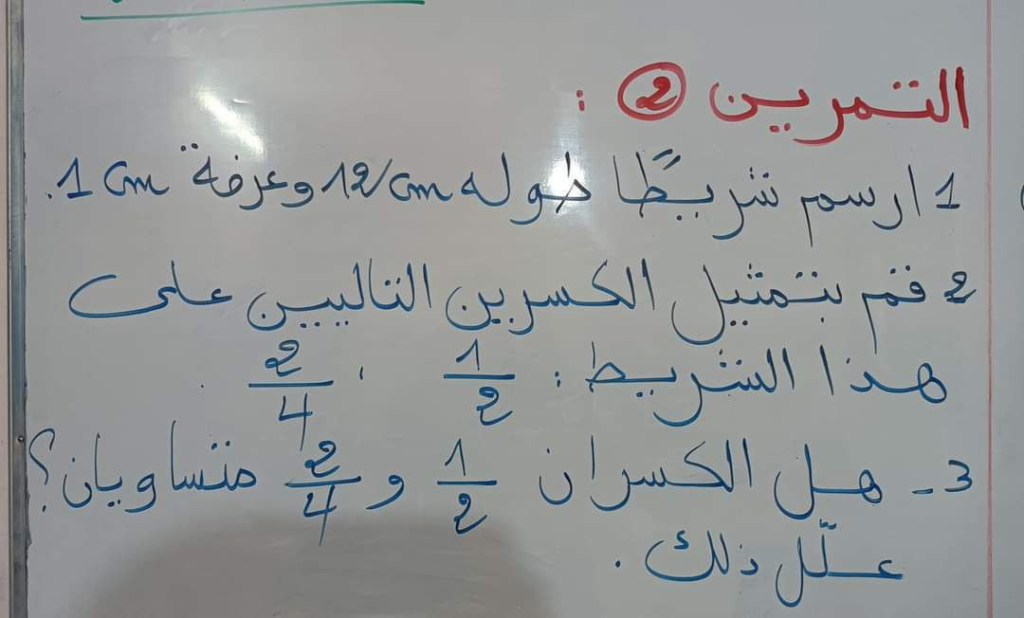 التمرين 2 :
1 ارسم شريطًا طوله 12cm وعرضه 1cm.
2 قم بتمثيل الكسرين التاليين على
هذا الشريط: 1/2 ، 2/4 .
3- هل الكسران 1/2 و 2/4 متساويان؟
علّل ذلك.